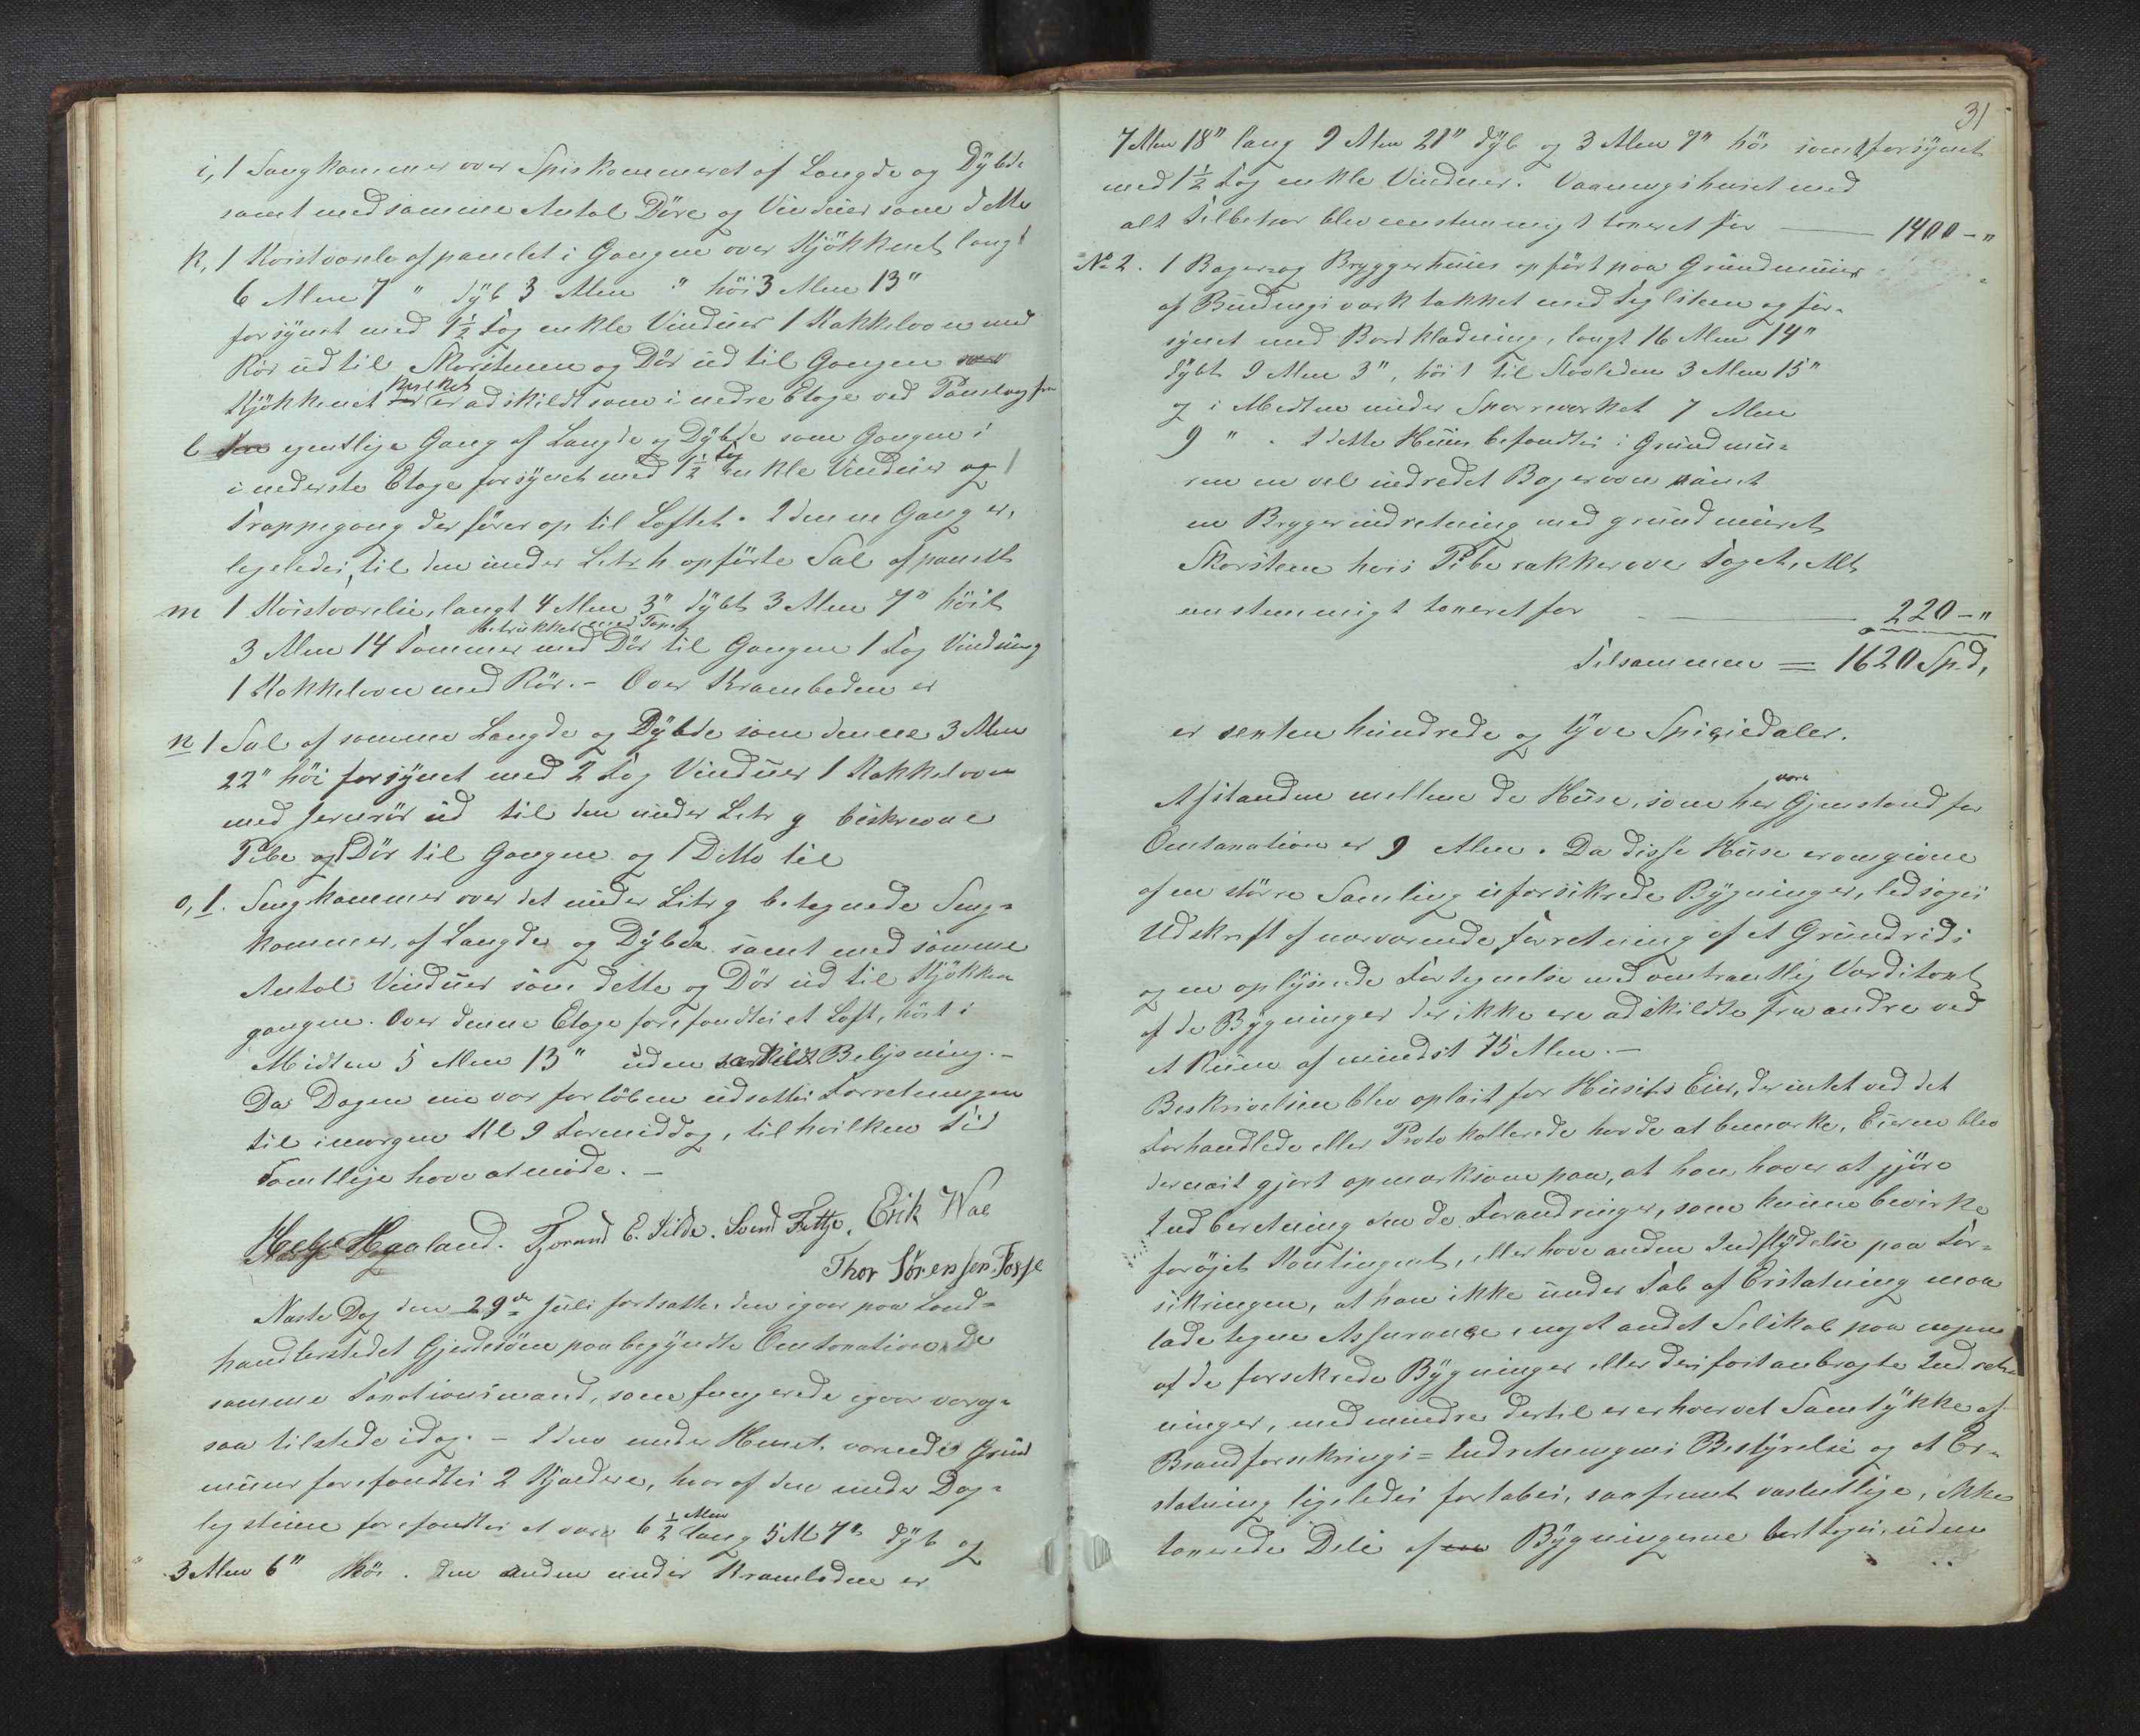 i, 1 Sengkammer over Spiskammeret af Længde og Dybde
samt med samme Antal Døre og Vinduer som dette
k, 1 Kvistværelse af panelet i Gangen over Kjøkkenet langt
6 Alen 7 " dyb 3 Alen " høi 3 Alen 13"
forsynet med 1½ Fag enkle Vinduer 1 Kakkelovn med
Rør ud til Skorstenen og Dør ud til Gangen
Kjøkkenet hvilket er adskildt som i nedre Etage ved Panelvæg fra
l den egentlige Gang af Længde og Dybde som Gangen i
i nederste Etage forsynet med 1½ Fag enkle Vinduer og 1
Trappegang der fører op til Loftet. I denne Gang er,
ligeledes, til den under Litr h opførte Sal af panelt
m 1 Kvistværelse, langt 4 Alen 3" dybt 3 Alen 7" høit
3 Alen 14 Tommer betrukket med Tapet med Dør til Gangen 1 Fag Vindue og
1 Kakkelovn med Rør. - Over Kramboden er
n 1 Sal af samme Længde og Dybde som denne 3 Alen
22" høi forsynet med 2 Fag Vinduer 1 Kakkelovn
med Jernrør ud til den under Litr g beskrevne
Pibe og 1 Dør til Gangen og 1 Ditto til
o, 1. Sengkammer over det under Litr g betegnede Seng-
kammer, af Længde og Dybde samt med samme
Antal Vinduer som dette og Dør ud til Kjøkken
gangen. Over denne Etage forefandtes et Loft, høit i
Midten 5 Alen 13" uden særskilt Belysning. -
Da Dagen nu var forløben udsattes Forretningen
til imorgen Kl 9 Formiddag, til hvilken Tid
Samtlige have at møde. -
Helge Haaland. Tjorand E. Tilde. Svend Fattje. Erik Wae
Thor Sørensen Fosse
Næste Dag den 29de Juli fortsattes den igaar paa Land-
handlerstedet Gjerdesøen paabegyndte Omtaxation, de
samme Taxationsmænd, som fungerede igaar var og-
saa tilstede idag. - I den under Huset værende Grund
muur forefandtes 2 Kjældere, hvoraf den under Dag-
ligstuen forefandtes at være 6½ Alen lang 5 Al 7" dyb og
3 Alen 6" høi. den anden under Kramboden er
31
7 Alen 18" lang 9 Alen 21" dyb og 3 Alen 7" høi samt forsynet
med 1½ Fag enkle Vinduer. Vaaningshuset med
alt Tilbehør blev eenstemmigt taxeret for — 1400 - "
No 2. 1 Bager- og Bryggerhuus opført paa Grundmuur
af Bindingsværk takket med Teglsteen og for-
synet med Bordklædning, langt 16 Alen 14"
dybt 9 Alen 3", høit til Raveleden 3 Alen 15"
og i Midten under Sparreværket 7 Alen
9 " . I dette Huus befandtes i Grundmu-
ren en vel indredet Bagerovn samt
en Bryggerindretning med grundmuret
Skorsteen hvis Pibe rækker over Taget, Alt
eenstemmigt taxeret for — 220 - "
Tilsammen = 1620 Spd,
er sexten hundrede og tyve Speciedaler.
Afstanden mellem de Huse, som her vare Gjenstand for
Omtaxation er 9 Alen. Da disse Huse er omgivne
af en større Samling uforsikrede Bygninger, ledsages
Udskrift af nærværende Forretning af et Grundrids
og en oplysende Fortegnelse med omtrentlig Værditaxt
af de Bygninger der ikke ere adskildte fra andre ved
et Rum af mindst 75 Alen. -
Beskrivelsen blev oplæst for Husets Eier, der intet ved det
Forhandlede eller Protokollerede havde at bemærke, Eieren blev
dernæst gjort opmærksom paa, at han haver at gjøre
Indberetning om de Forandringer, som kunne bevirke
forøjet Kontingent, eller have anden Indflydelse paa For-
sikringen, at han ikke under Tab af Erstatning maa
lade tegne Assurance i noget andet Selskab paa nogen
af de forsikrede Bygninger eller deri fast anbragte Indret-
ninger, medmindre dertil er erhvervet Samtykke af
Brandforsikrings-Indretningens Bestyrelse og at Er-
statning ligeledes fortabes, saafremt væsentlige, ikke
taxerede Dele af Bygningerne borttages, uden